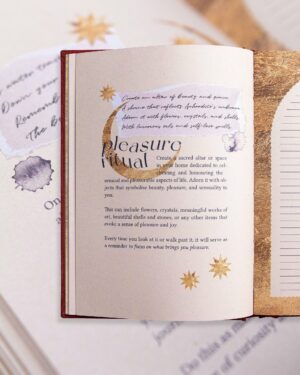 Create an altar of beauty and space
adorn it with flowers, crystals, and shells
pleasure
ritual
Create a sacred altar or space
in your home dedicated to cel-
ebrating and honoring the
sensual and pleasurable aspects of life. Adorn it with ob-
jects that symbolize beauty, pleasure, and sensuality to
you.
This can include flowers, crystals, meaningful works of
art, beautiful shells and stones, or any other items that
evoke a sense of pleasure and joy.
Every time you look at it or walk past it, it will serve as
a reminder to focus on what brings you pleasure.
Do this as m
of curiosity a